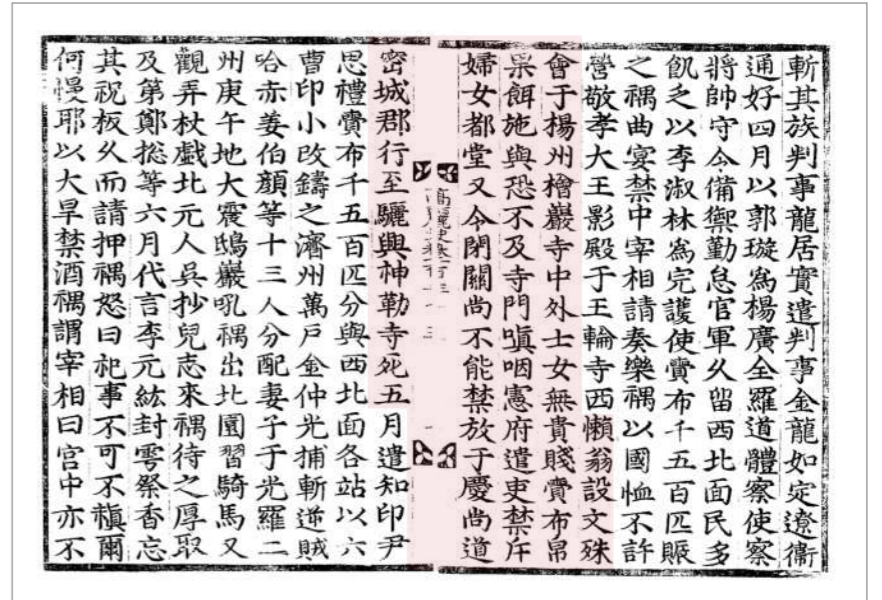 斬其族判事龍居實遣判事金龍如定遼衞
通好四月以郭璇爲楊廣全羅道體察使察
將帥守令備禦勤怠官軍久留西北面民多
飢乏以李淑林爲完護使賫布千五百匹賑
之禑曲宴禁中宰相請奏樂禑以國恤不許
營敬孝大王影殿于王輪寺西懶翁設文殊
會于楊州檜巖寺中外士女無貴賤賫布帛
果餌施與恐不及寺門嗔咽憲府遣吏禁斥
婦女都堂又令閉關尚不能禁放于慶尚道
高麗史卷百三十三
密城郡行至驪興神勒寺死五月遣知印尹
思禮賫布千五百匹分與西北面各站以六
曹印小改鑄之濟州萬戶金仲光捕斬逆賊
哈赤姜伯顔等十三人分配妻子于光羅二
州庚午地大震鴟巖吼禑出北園習騎馬又
觀弄杖戲北元人吳抄兒志來禑待之厚取
及第鄭摠等六月代言李元紘封雩祭香忘
其祝板久而請押禑怒曰祀事不可不愼爾
何慢耶以大旱禁酒禑謂宰相曰宮中亦不